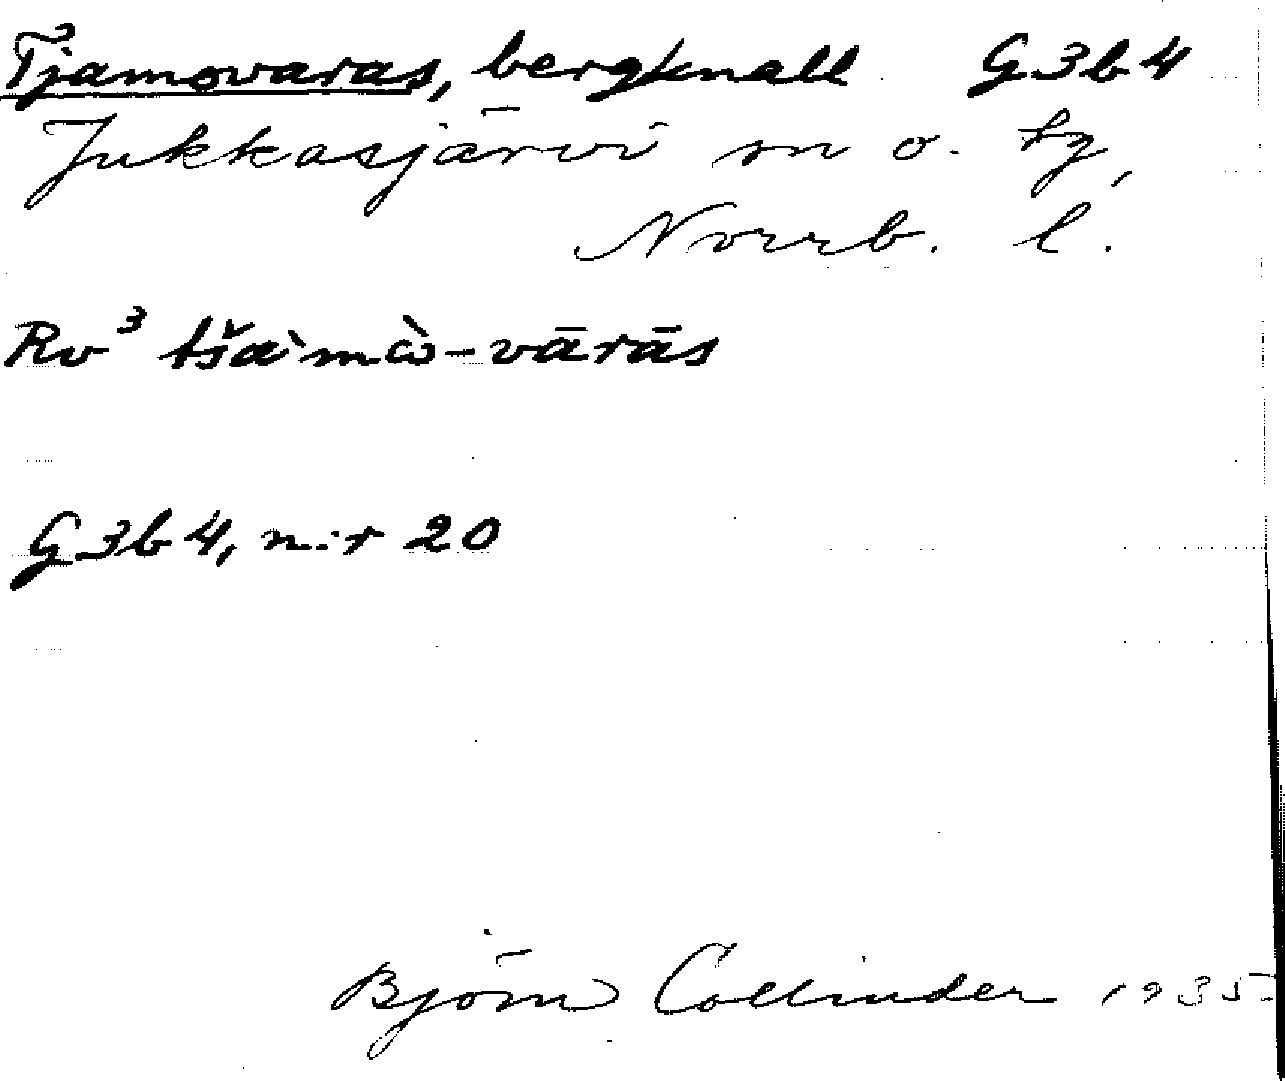 Tjamovaras, bergknall G3b4
Jukkasjärvi sn o. tg,
Norrb. l.
Rv³ tšaˋmὼ-vārās
G3b4, n:r 20
Björn Collinder 1935